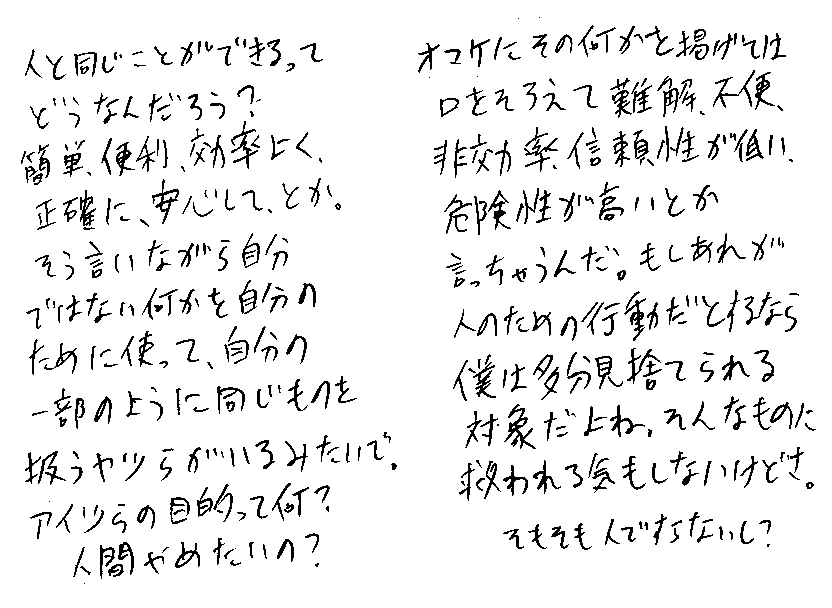 人と同じことができるって
どうなんだろう?
簡単、便利、効率よく、
正確に、安心して、とか。
そう言いながら自分
ではない何かを自分の
ために使って、自分の
一部のように同じものを
扱うヤツらがいるみたいで。
アイツらの目的って何?
人間やめたいの?
オマケにその何かを掲げては
口をそろえて難解、不便、
非効率、信頼性が低い、
危険性が高いとか
言っちゃうんだ。もしあれが
人のための行動だとするなら
僕は多分見捨てられる
対象だよね。そんなものに
救われる気もしないけどさ。
そもそも人ですらないし?